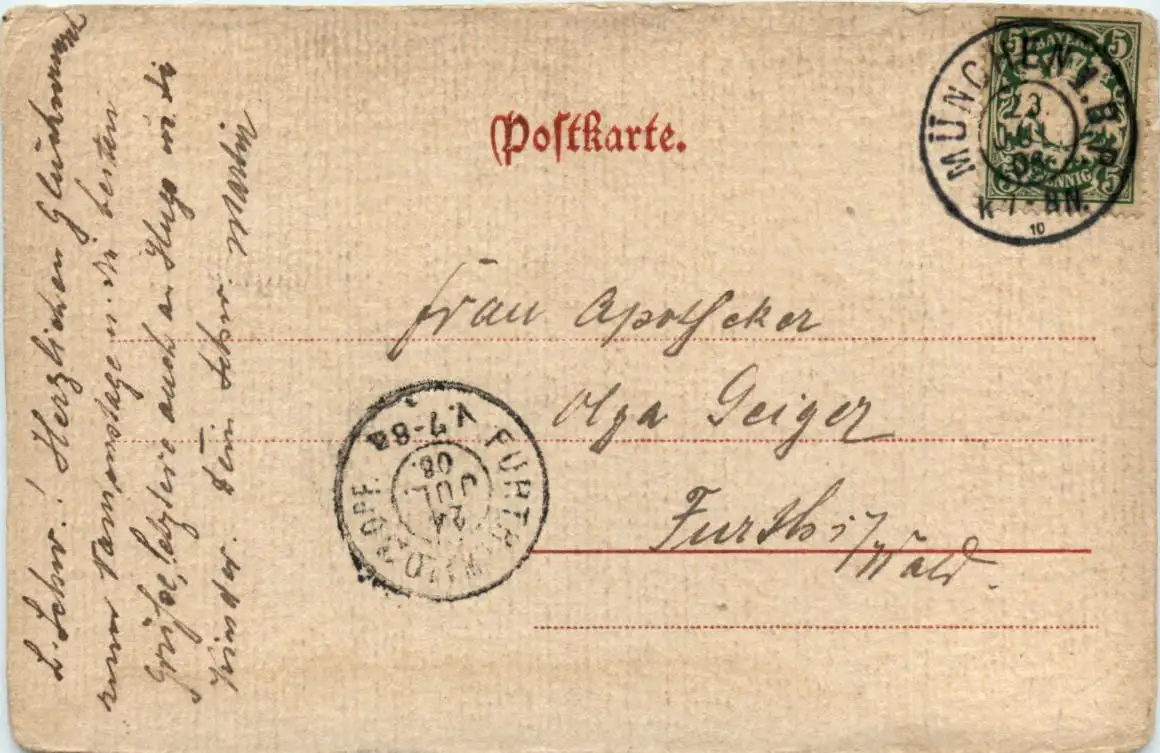 Postkarte.
5 BAYERN 5
5 PFENNIG 5
MÜNCHEN 1. B.P.
23.
JUL.
08
K 7-8 N.
10
Frau Apotheker
Olga Geiger
Furth i/
Wald.
FURTH WALD OPF.
24
JUL
08.
V. 7-8
L. Schw.! Herzlichen Glückwunsch
Namenstage u. die besten
Grüße, letztere auch an Hugo u. die
Kinder. Dein Schw. Martin